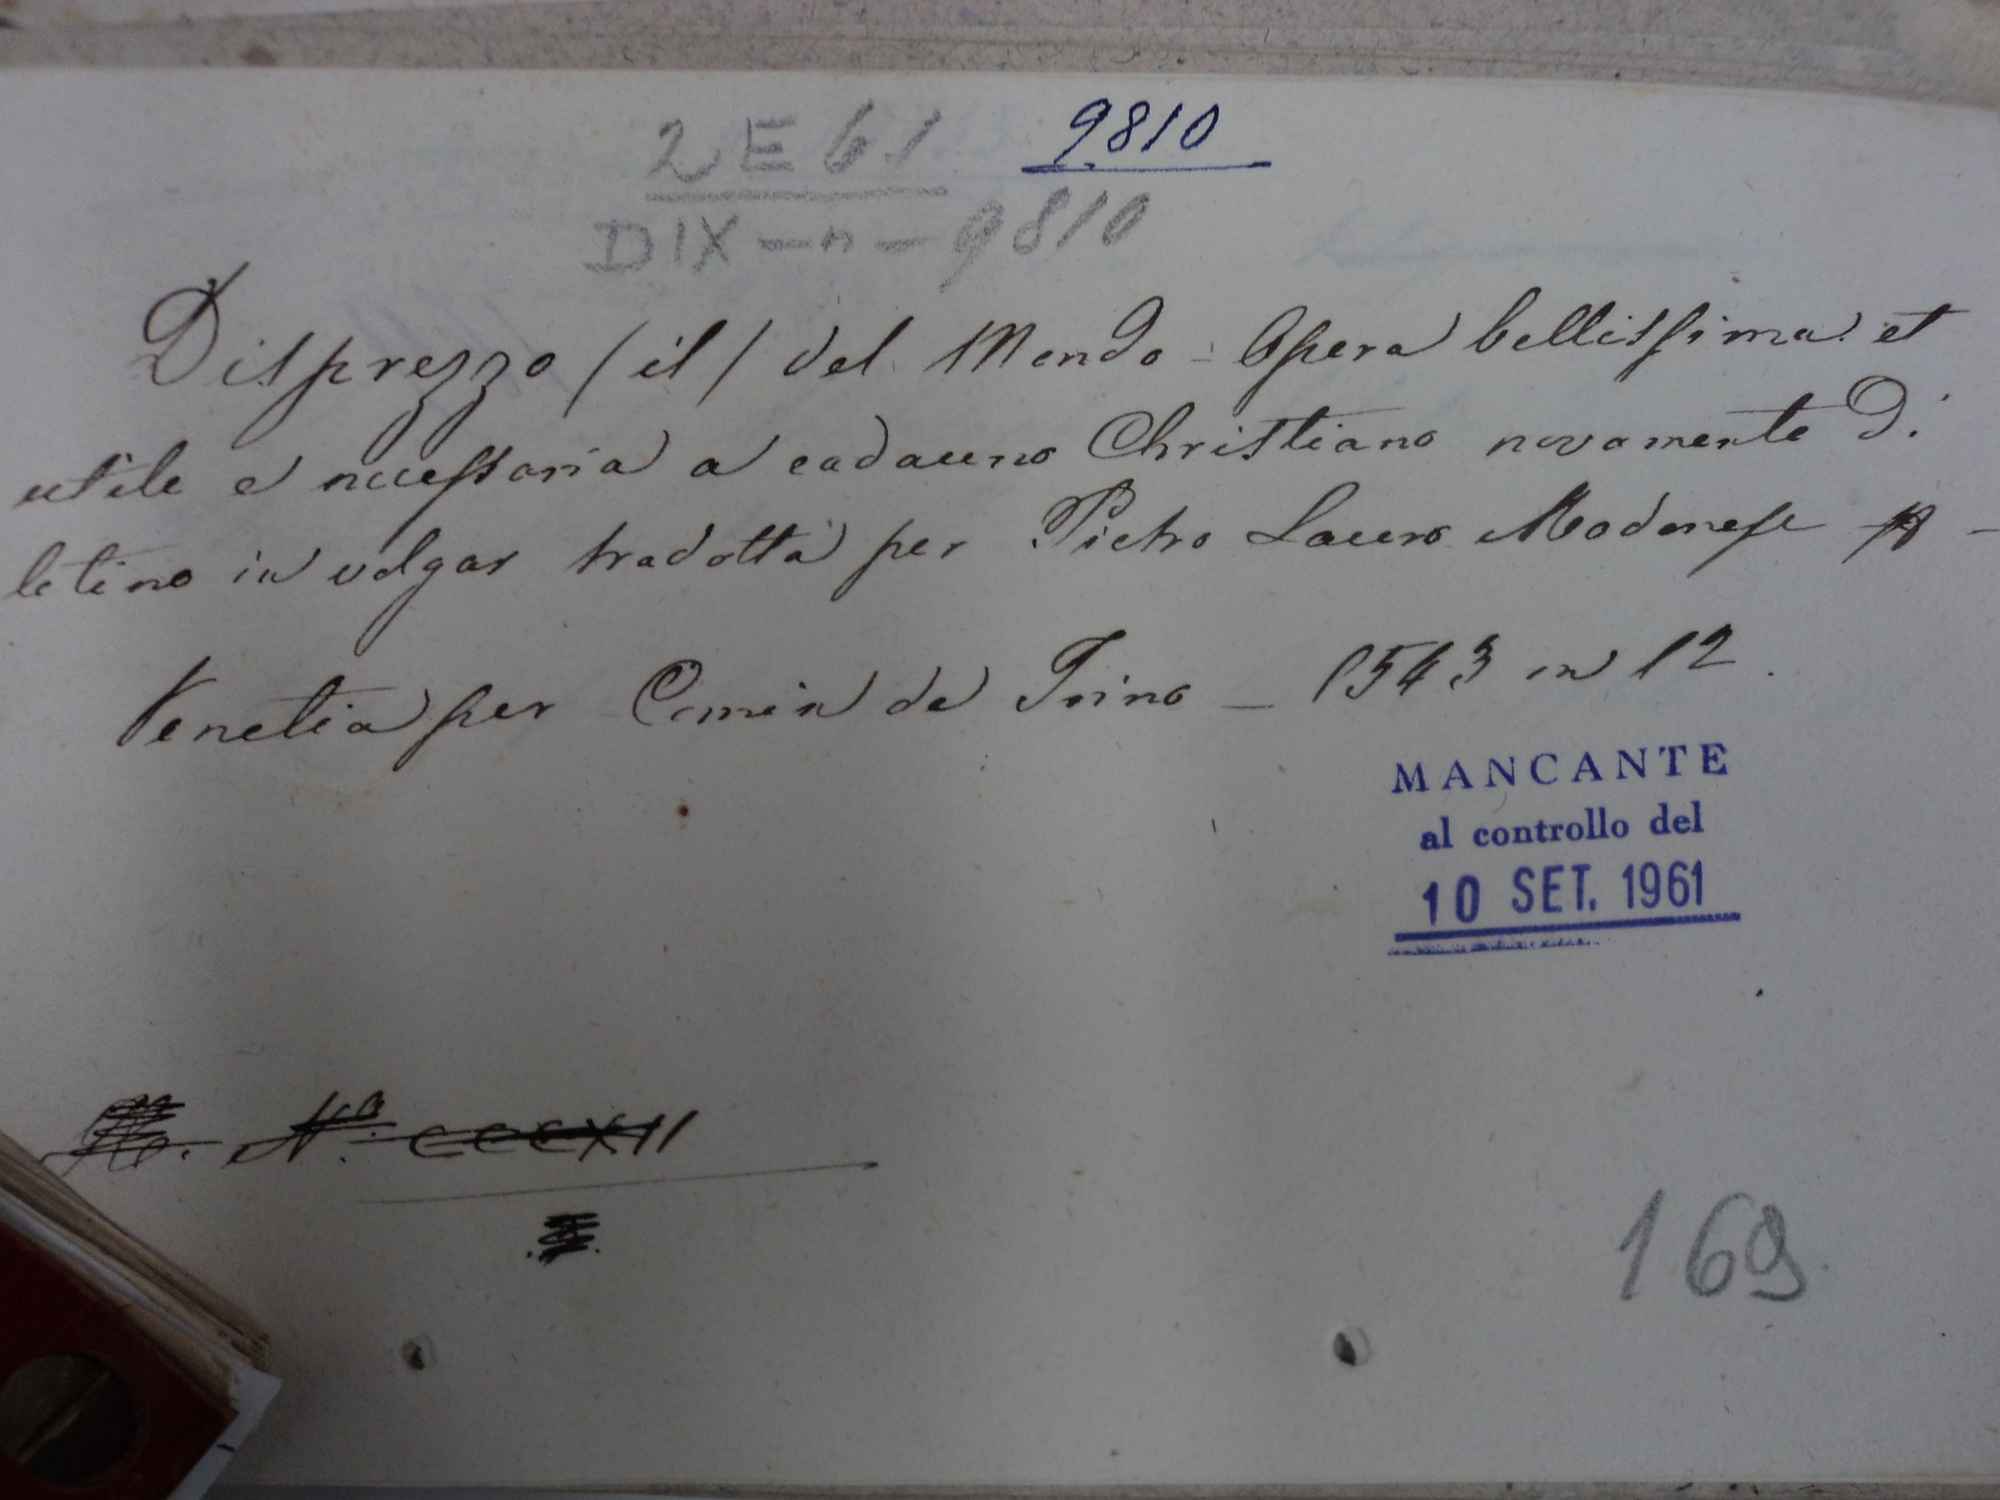 2 E 61 9810
DIX - n - 9810
Disprezzo (il) del Mondo - Opera bellissima et
utile e necessaria a cadauno Christiano novamente di
letino in volgar tradotta per Pietro Lauro Modonese -
Venetia per Comin de Trino - 1543 in 12.
MANCANTE
al controllo del
10 SET. 1961
No. CCCXII
169